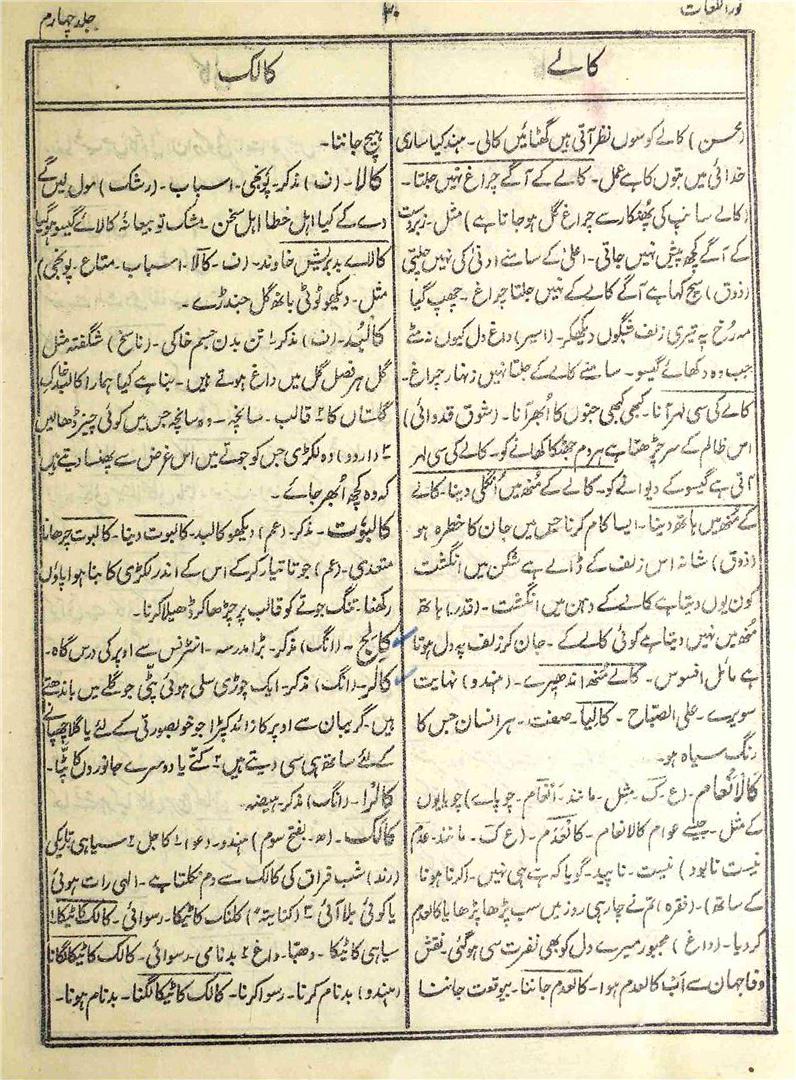 نور اللغات
۳۰
جلد چہارم
کالے
کالک
(محسن) کالے کوسوں نظر آتی ہیں گھٹائیں کالی۔ ہند کیا ساری
خدائی میں بتوں کا ہے عمل۔ کالے کے آگے چراغ نہیں جلتا۔
(کالے سانپ کی پھنکار سے چراغ گل ہوجاتا ہے) مثل۔ زبردست
کے آگے کچھ پیش نہیں جاتی۔ اعلیٰ کے سامنے ادنیٰ کی نہیں چلتی
(ذوق) سچ کہا ہے آگے کالے کے نہیں جلتا چراغ۔ چھپ گیا
مہ رخ پہ تیری زلف شبگوں دیکھکر۔ (اسیر) داغ دل کیوں نہ مٹے
جب وہ دکھائے گیسو۔ سامنے کالے کے جلتا نہیں زنہار چراغ۔
کالے کی سی لہر آنا۔ کبھی کبھی جنوں کا اُبھر آنا۔ (شوق قدوائی)
اس ظالم کے سر چڑھتا ہے ہر دم جھٹکا کھانے کو۔ کالے کی سی لہر
آتی ہے گیسو کے دیوانے کو۔ کالے کے منھ میں اُنگلی دینا۔ کالے
کے منھ میں ہاتھ دینا۔ ایسا کام کرنا جس میں جان کا خطرہ ہو
(ذوق) شانہ اس زلف کے ڈالے ہے شکن میں انگشت
کون یوں دیتا ہے کالے کے دہن میں انگشت۔ (قدر) ہاتھ
منھ میں نہیں دیتا ہے کوئی کالے کے۔ جان کر زلف پہ دل ہوتا
ہے مائل افسوس۔ کالے منھ اندھیرے۔ (ہندو) نہایت
سویرے۔ علی الصّباح۔ کالیا۔ صفت۔ ہر انسان جس کا
رنگ سیاہ ہو۔
کالاَنعام۔ (ع۔ ک۔ مثل۔ مانند۔ انعام۔ چوپاے) چوپایوں
کے مثل۔ جیسے عوام کالانعام۔ کالعدم۔ (ع ک۔ مانند۔ عدم
نیست نابود) نیست۔ ناپید۔ گویا کہ ہے ہی نہیں۔ (کرنا ہونا
کے ساتھ)۔ (فقرہ) تم نے چار ہی روز میں سب پڑھا پڑھایا کالعدم
کردیا۔ (داغ) مجبور میرے دل کو بھی نفرت سی ہوگئی۔ نقش
وفا جہان سے اَب کالعدم ہوا۔ کالعدم جاننا۔ بیوقعت جاننا
ہیچ جاننا۔
کالا۔ (ف) مذکر۔ پونجی۔ اسباب۔ (رشک) مول لیں گے
دے کے کیا اہل خطا اہل سخن۔ مشک تو بیعانۂ کالائے گیسو ہوگیا
کالاے بد بریش خاوند۔ (ف۔ کالا۔ اسباب۔ متاع۔ پونجی)
مثل۔ دیکھو ٹوٹی باٹھ گل جندڑے۔
کالبُد۔ (ف) مذکر۔ ۱ تن بدن جسم خاکی۔ (ناسخ) شگفتہ مثل
گل ہر فصل گل میں داغ ہوتے ہیں۔ بنا ہے کیا ہمارا کالبد خاک
گلستاں کا ۲ قالب۔ سانچہ۔ وہ سانچہ جس میں کوئی چیز ڈھالیں
۳ (اردو) وہ لکڑی جس کو جوتے میں اس غرض سے پھنسا دیتے ہیں
کہ وہ کچھ اُبھر جائے۔
کالبوت۔ مذکر۔ (عم) دیکھو کالبد۔ کالبوت دینا۔ کالبوت چڑھانا
متعدی۔ (عم) جوتا تیار کرکے اس کے اندر لکڑی کا بنا ہوا پاؤں
رکھنا۔ تنگ جوتے کو قالب پر چڑھا کر ڈھیلا کرنا۔
کالج۔ (انگ) مذکر۔ بڑا مدرسہ۔ انٹرنس سے اوپر کی درس گاہ۔
کالر۔ (انگ) مذکر۔ ایک چوڑی سلی ہوئی پٹی جو گلے میں باندھتے
ہیں۔ گریبان سے اوپر کا زائد کپڑا جو خوبصورتی کے لئے یا گلا چھپانے
کے لئے ساتھ ہی سی دیتے ہیں ۲ کتّے یا دوسرے جانوروں کا پٹّا۔
کالرا۔ (انگ) مذکر۔ ہیضہ۔
کالک۔ (ھ۔ بفتح سوم) ہندو۔ دعوا۔ ۱ کاجل ۲ سیاہی تاریکی
(رند) شب فراق کی کالک سے دم نکلتا ہے۔ الٰہی رات ہوئی
یا کوئی بلا آئی ۳ (کنایتہً) کلنک کا ٹیکا۔ رسوائی۔ کالک کا ٹیکا۔ ۱
سیاہی کا ٹیکا۔ دھبّا۔ داغ ۲ بدنامی۔ رسوائی۔ کالک کا ٹیکا لگانا
(ہندو) بدنام کرنا۔ رسوا کرنا۔ کالک کا ٹیکا لگنا۔ بدنام ہونا۔